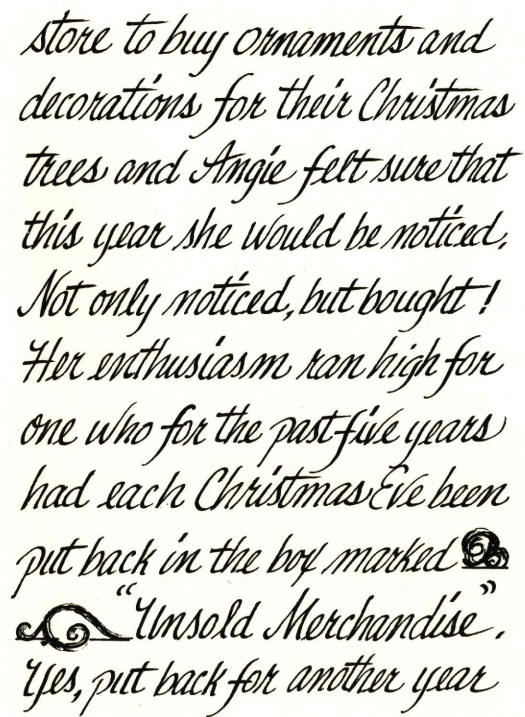 store to buy ornaments and
decorations for their Christmas
trees and Angie felt sure that
this year she would be noticed.
Not only noticed, but bought!
Her enthusiasm ran high for
one who for the past five years
had each Christmas Eve been
put back in the box marked
"Unsold Merchandise".
Yes, put back for another year